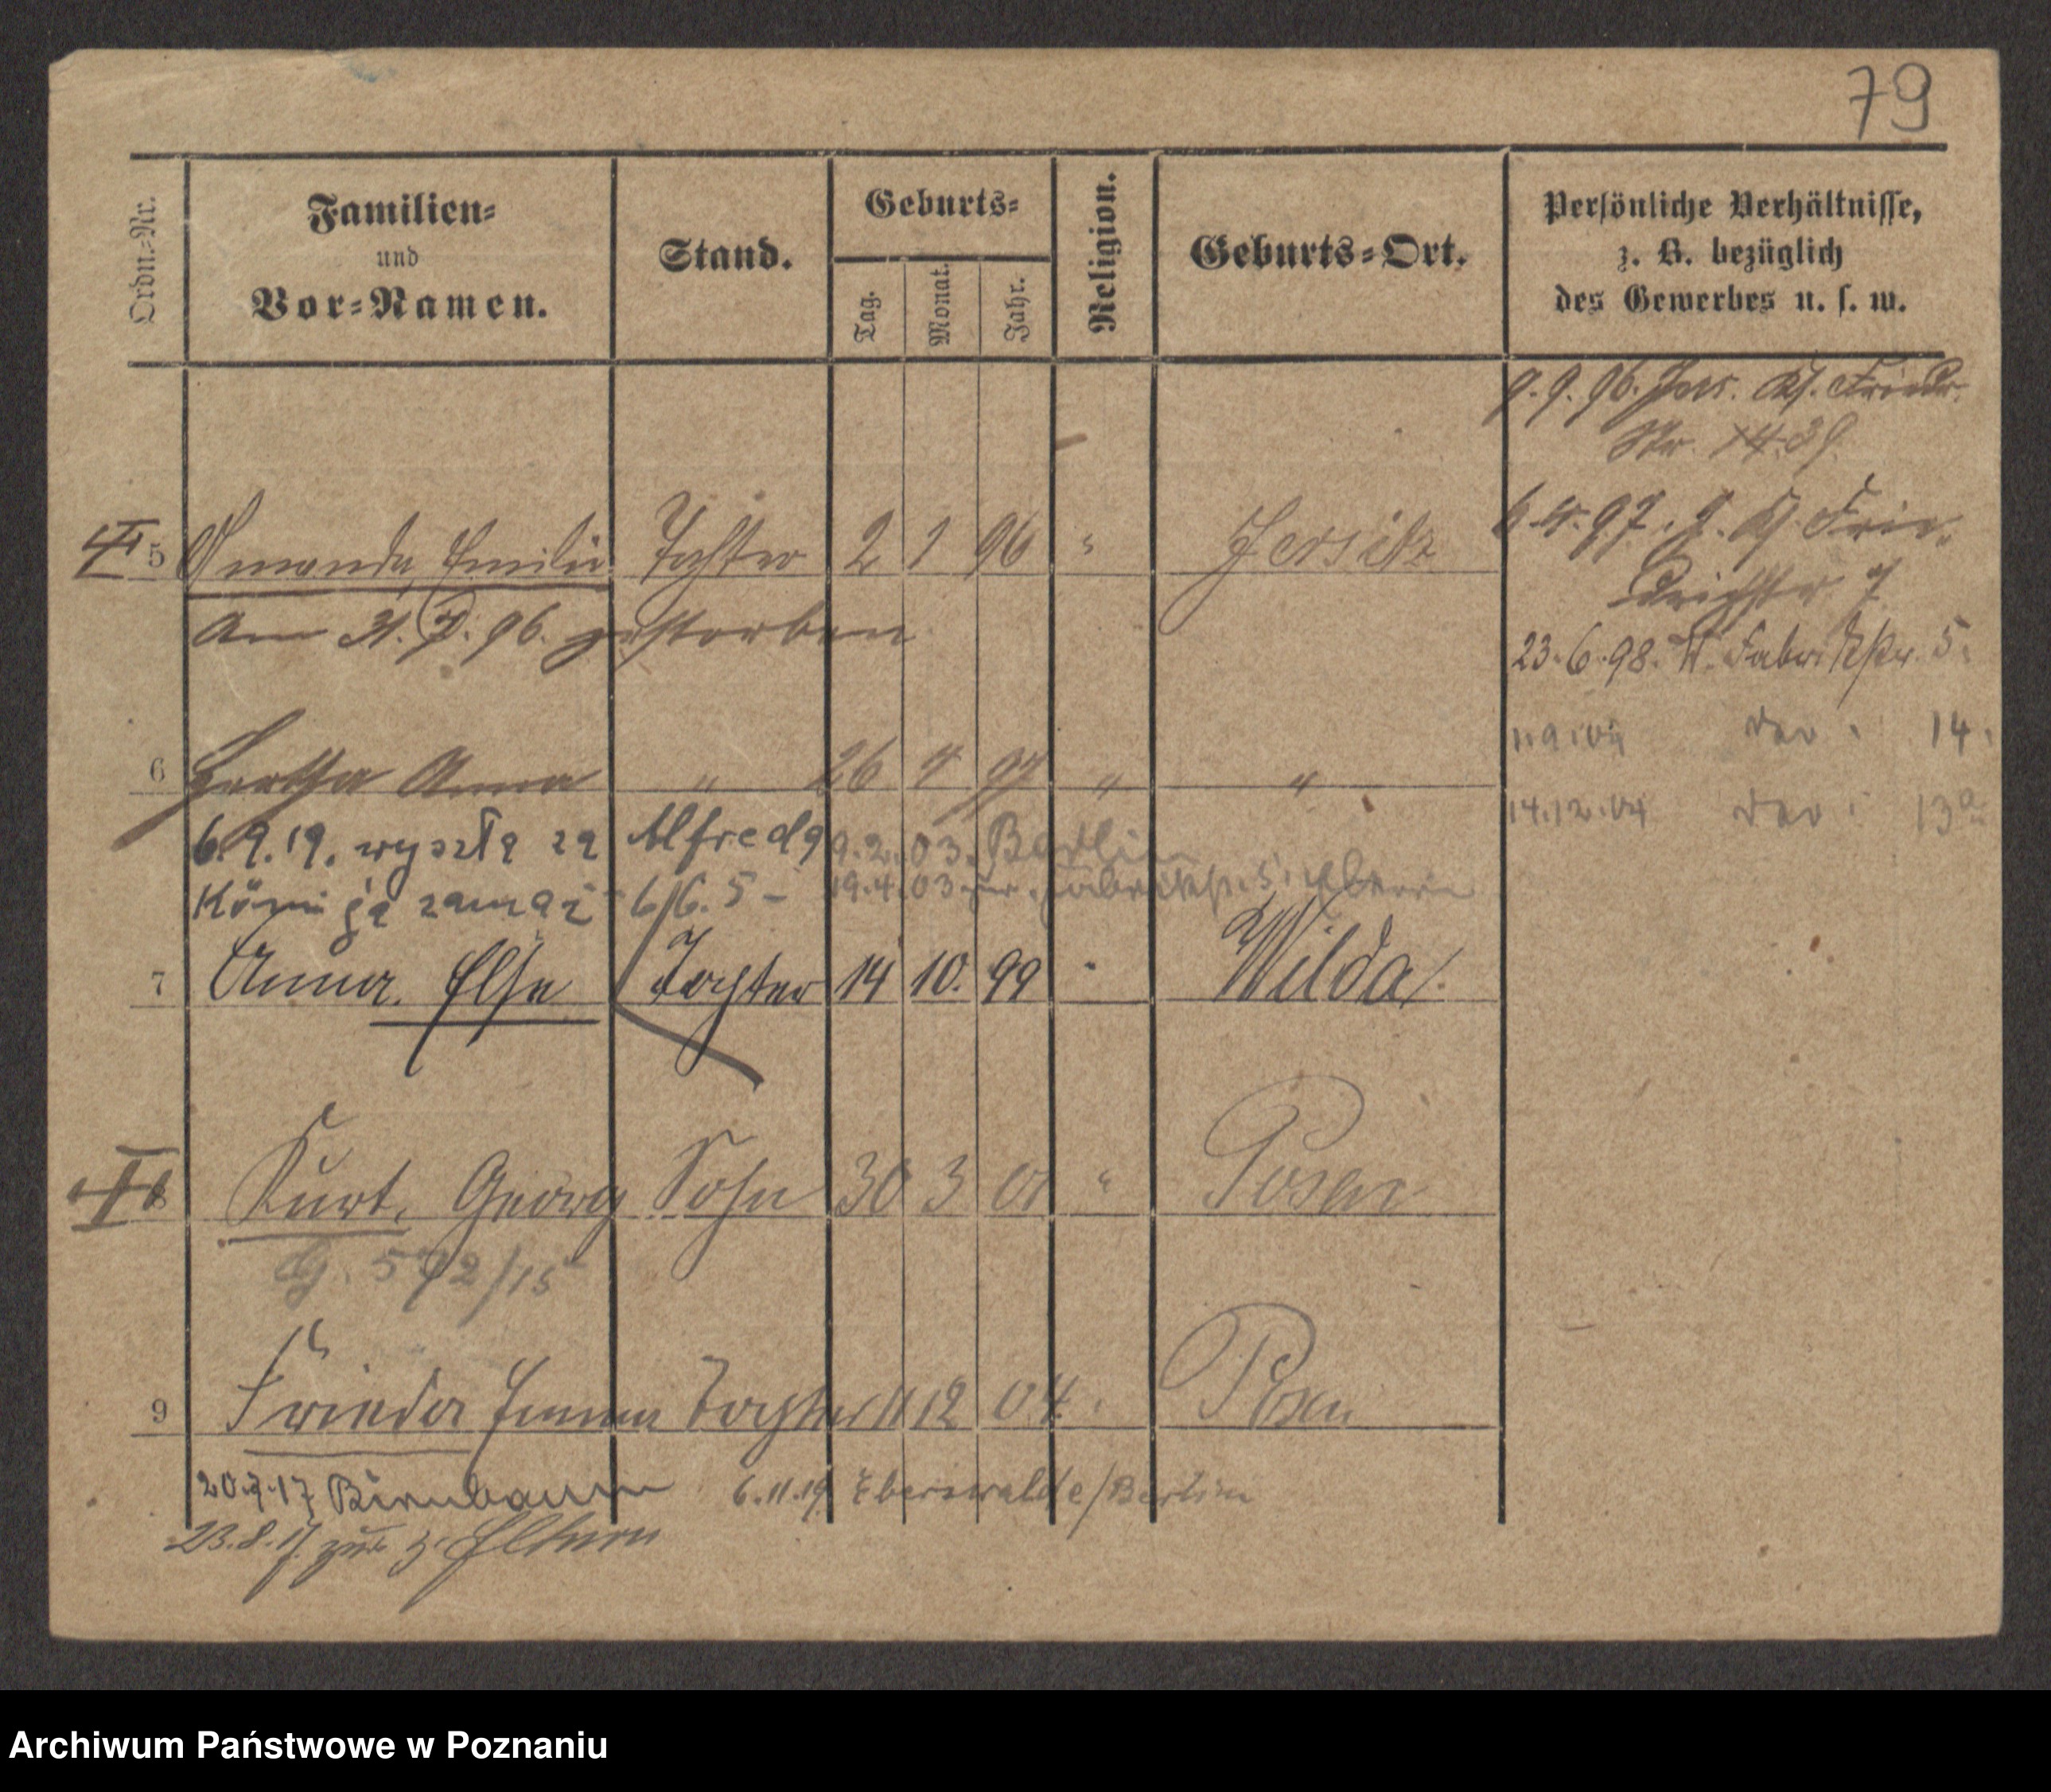 79
Ordn.=Nr.
Familien=
und
Vor=Namen.
Stand.
Geburts=
Tag.
Monat.
Jahr.
Religion.
Geburts=Ort.
Persönliche Verhältnisse,
z. B. bezüglich
des Gewerbes u. s. w.
9. 9. 96. Jers. Friedr.
Str. 14. 39.
5 Amanda, Emilie Tochter 2 1 96 " Jersitz
97. Frie-
drichstr 7
Am 31. 7. 96. gestorben
23.6.98. W. Fabrikstr. 5.
1.9.04 14.
6 Hertha Anna " 26 4 97 " "
14.12.04 13a
6.9.19. wyszła za Alfreda 9.2.03. Berlin
19.4.03 Fabrikstr. 5.
zamąż 6/6. 5 -
7 Anna. Else Tochter 14 10. 99 " Wilda.
8 Kurt, Georg Sohn 30 3 01 " Posen
G. 572/15
9 Frieda Emma Tochter 11 12 04. Posen
20.7.17 Birnbaum 6.11.19 Eberswalde/Berlin
23.8.17. zur. z. Eltern
Archiwum Państwowe w Poznaniu